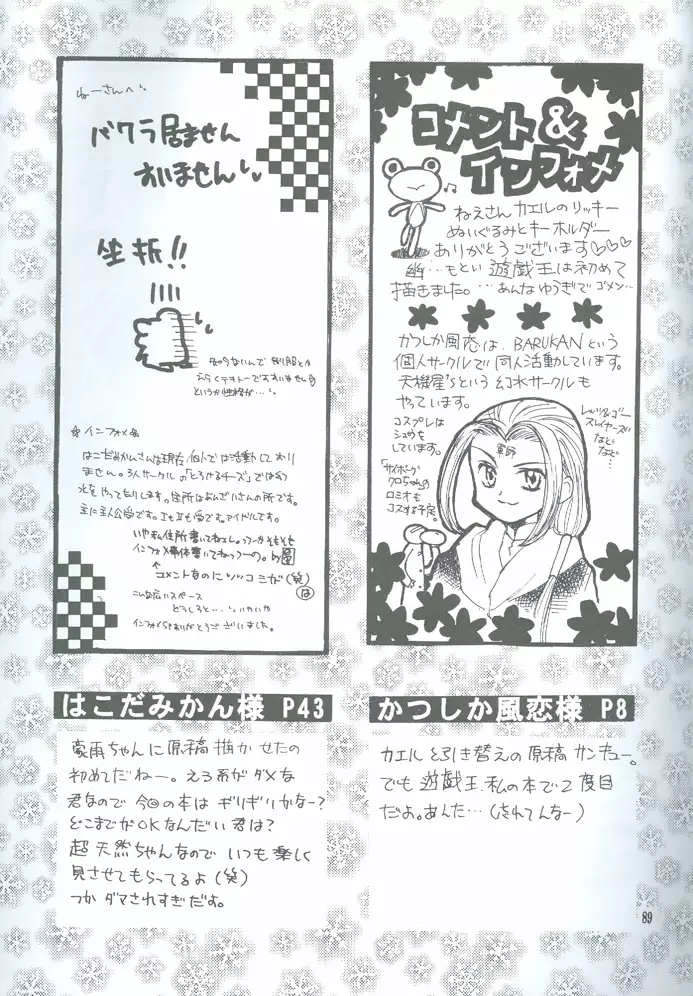 コメント&
インフォメ
ねえさん カエルのリッキー
ぬいぐるみとキーホルダー
ありがとうございます♡♡♡
幽…もとい 遊戯王は初めて
描きました。…あんなゆうぎでゴメン…
かつしか風恋は、BARUKANという
個人サークルで同人活動しています。
天機星'sという幻水サークルも
やっています。
コスプレは
シュウを
しています。
「サイボーグ
クロちゃんの
ロミオも
コスする予定。
レッツ&ゴー
スレイヤーズ
などなど…
軍師
かつしか風恋様 P8
カエルと引き替えの原稿サンキュー。
でも遊戯王、私の本で2度目
だよ。あんた…(忘れてんなー)
ねーさんへ
バクラ居ません
すいません
坐折!!
知らないんで 制服とか
えらくテキトーですすいません
というか性格が…
インフォメ
はこだみかんさんは現在個人では活動しており
ません。3人サークルの「とろけるチーズ」では幻
水をやっております。住所はよんだいさんの所です。
主に主人公受です。ⅠもⅡも受です。アイドルです。
いや私住所書いてねェしっつーかそもそも
インフォメ自体書いてねっつーの。
↑コメントなのにツッコミが(笑)
は
こんな広いスペース
どうしろと…いやいや
インフォメもありがとうございました。
はこだみかん様 P43
豪雨ちゃんに原稿描かせたの
初めてだねー。えろ系がダメな
君なので今回の本はギリギリかなー?
どこまでがOKなんだい君は?
超天然ちゃんなのでいつも楽しく
見させてもらってるよ(笑)
つかダマされすぎだす。
89